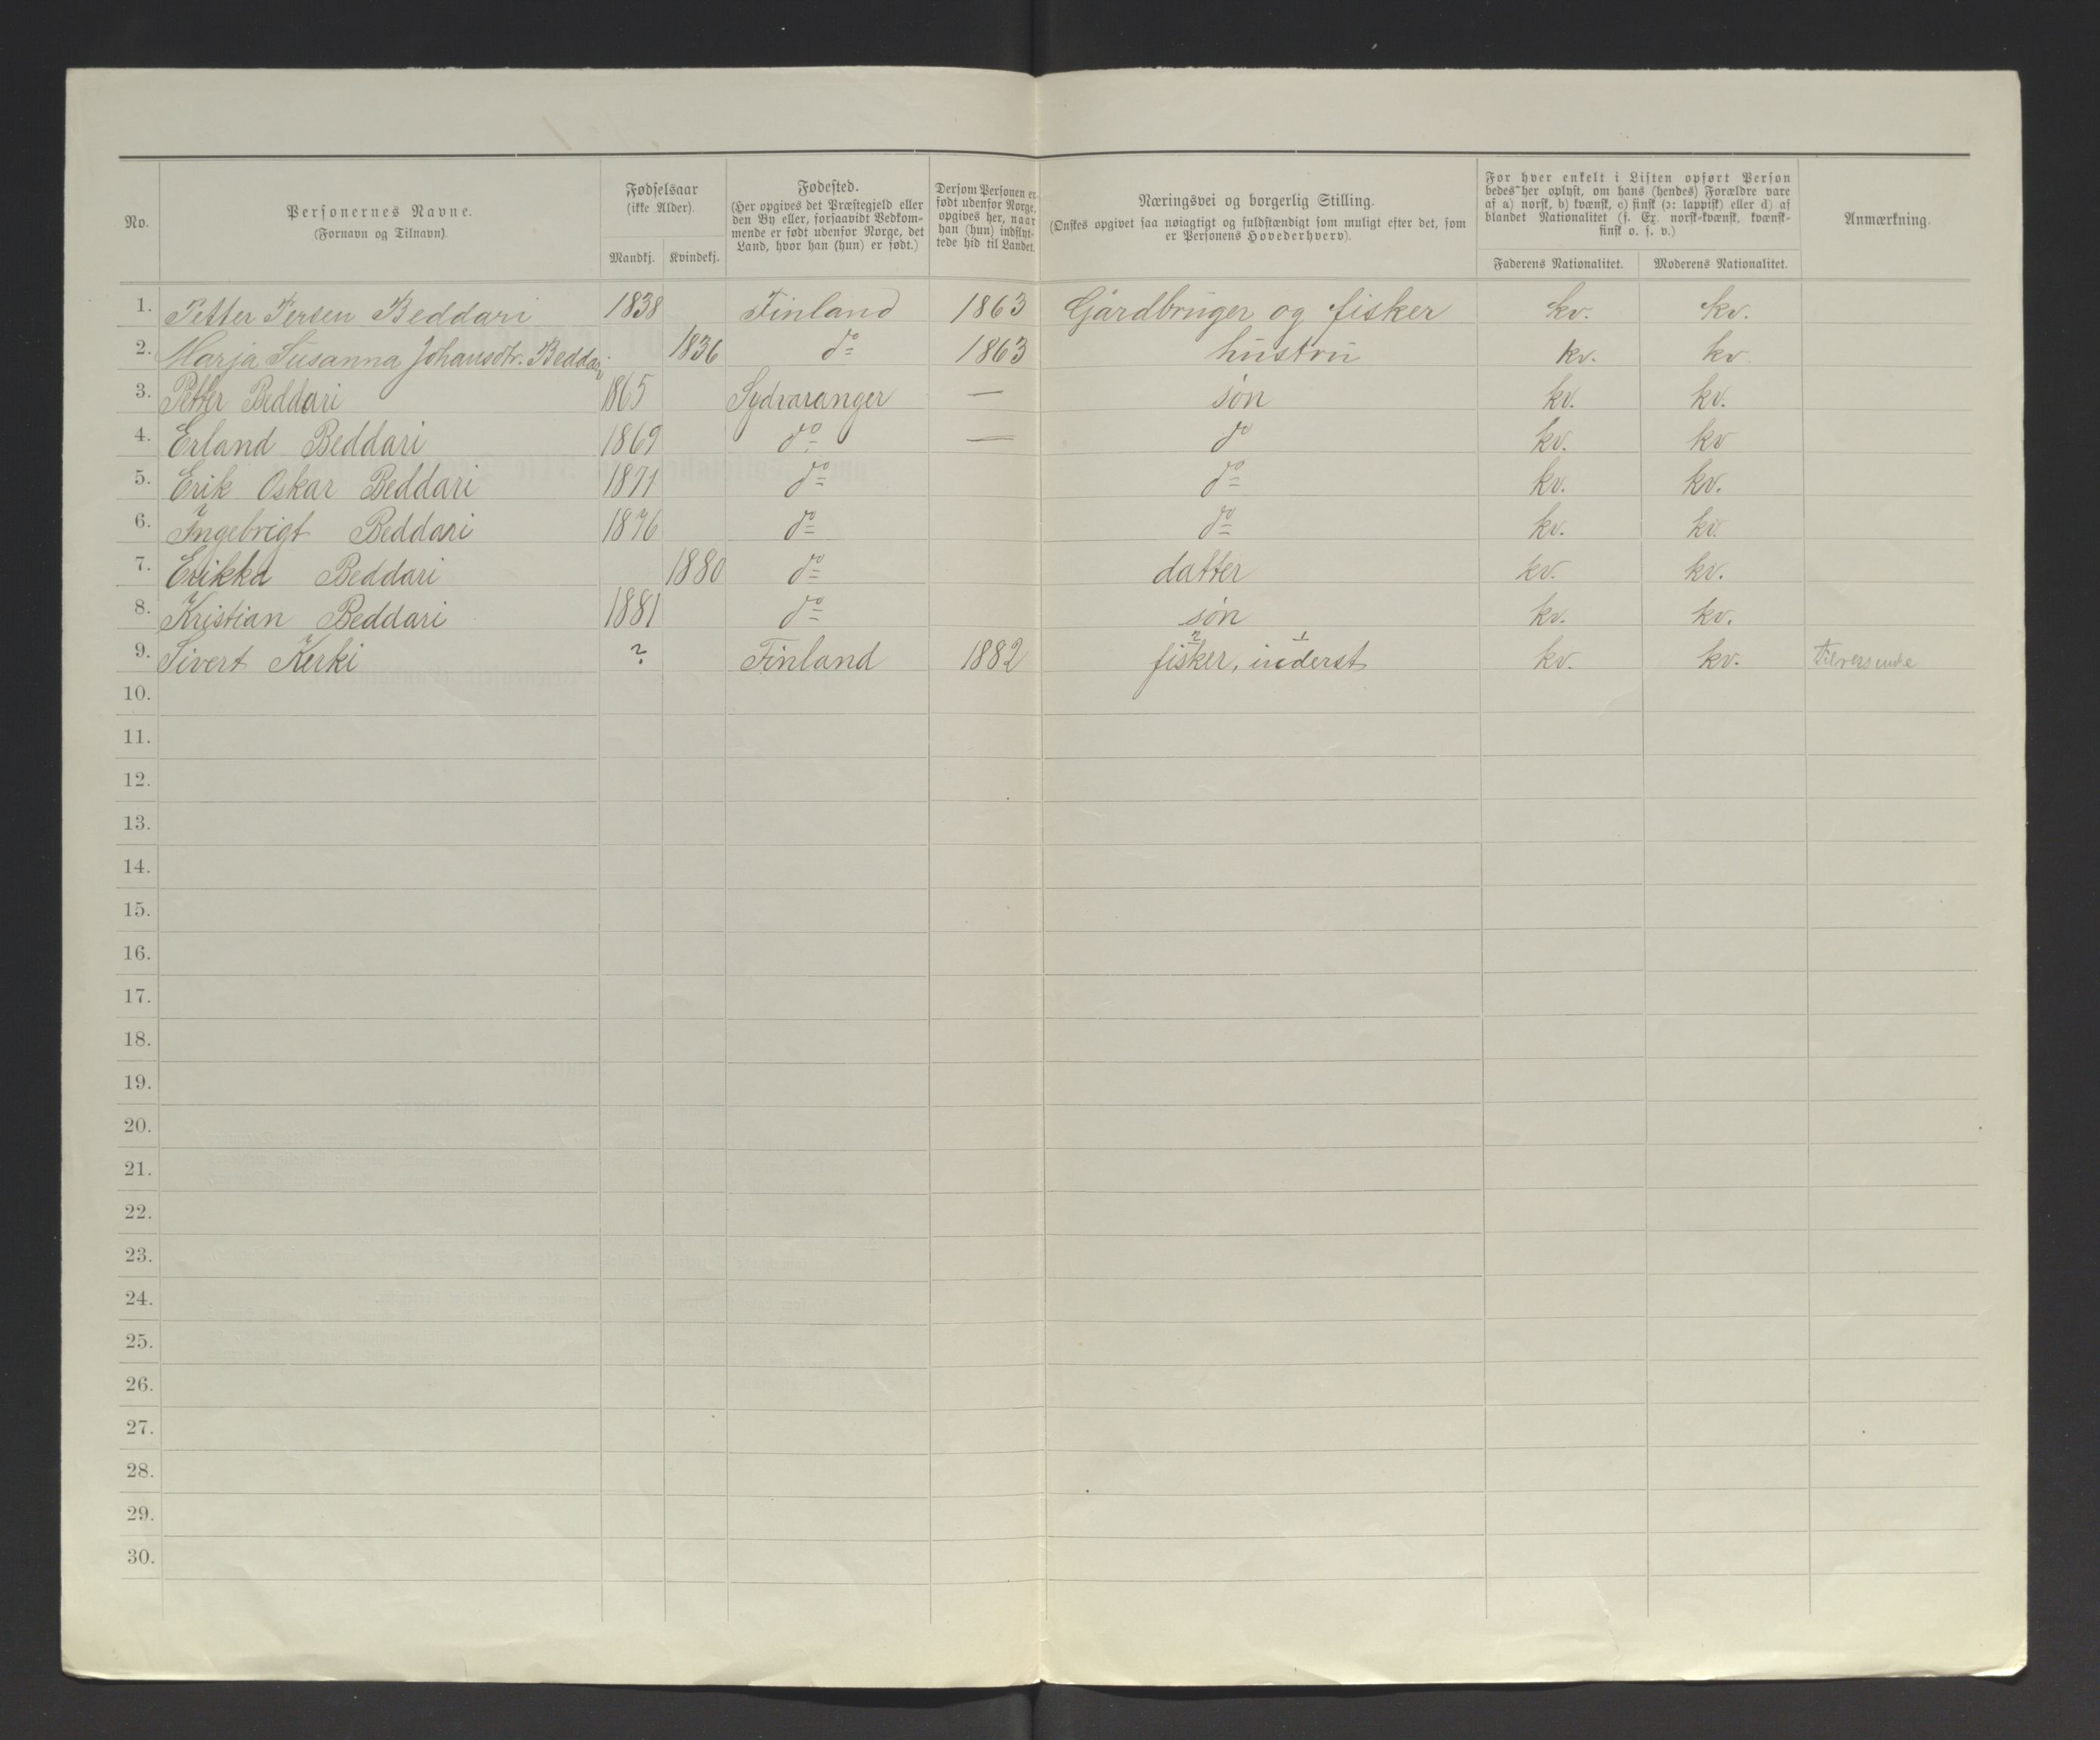 No.
Personernes Navne.
(Fornavn og Tilnavn).
Fødselsaar
(ikke Alder).
Mandkj. Kvindekj.
Fødested.
(Her opgives det Præstegjeld eller
den By eller, forsaavidt Vedkom-
mende er født udenfor Norge, det
Land, hvor han (hun) er født.)
Dersom Personen er
født udenfor Norge,
opgives her, naar
han (hun) indflyt-
tede hid til Landet.
Næringsvei og borgerlig Stilling.
(Ønskes opgivet saa nøiagtigt og fuldstændigt som muligt efter det, som
er Personens Hovederhverv).
For hver enkelt i Listen opført Person
bedes her oplyst, om hans (hendes) Forældre vare
af a) norsk, b) kvænsk, c) finsk (ɔ: lappisk) eller d) af
blandet Nationalitet (f. Ex. norsk-kvænsk, kvænsk-
finsk o. s. v.)
Faderens Nationalitet. Moderens Nationalitet.
Anmærkning.
1. Petter Persen Beddari 1838 Finland 1863 Gårdbruger og fisker kv. kv.
2. Marja Susanna Johansdtr. Beddari 1836 do 1863 hustru kv. kv.
3. Petter Beddari 1865 Sydvaranger — søn kv. kv.
4. Erland Beddari 1869 do — do kv. kv
5. Erik Oskar Beddari 1871 do do kv. kv.
6. Ingebrigt Beddari 1876 do do kv. kv.
7. Erikka Beddari 1880 do datter kv. kv.
8. Kristian Beddari 1881 do søn kv. kv.
9. Sivert Kerki ? Finland 1882 fisker, inderst kv. kv.
2 1
10.
11.
12.
13.
14.
15.
16.
17.
18.
19.
20.
21.
22.
23.
24.
25.
26.
27.
28.
29.
30.